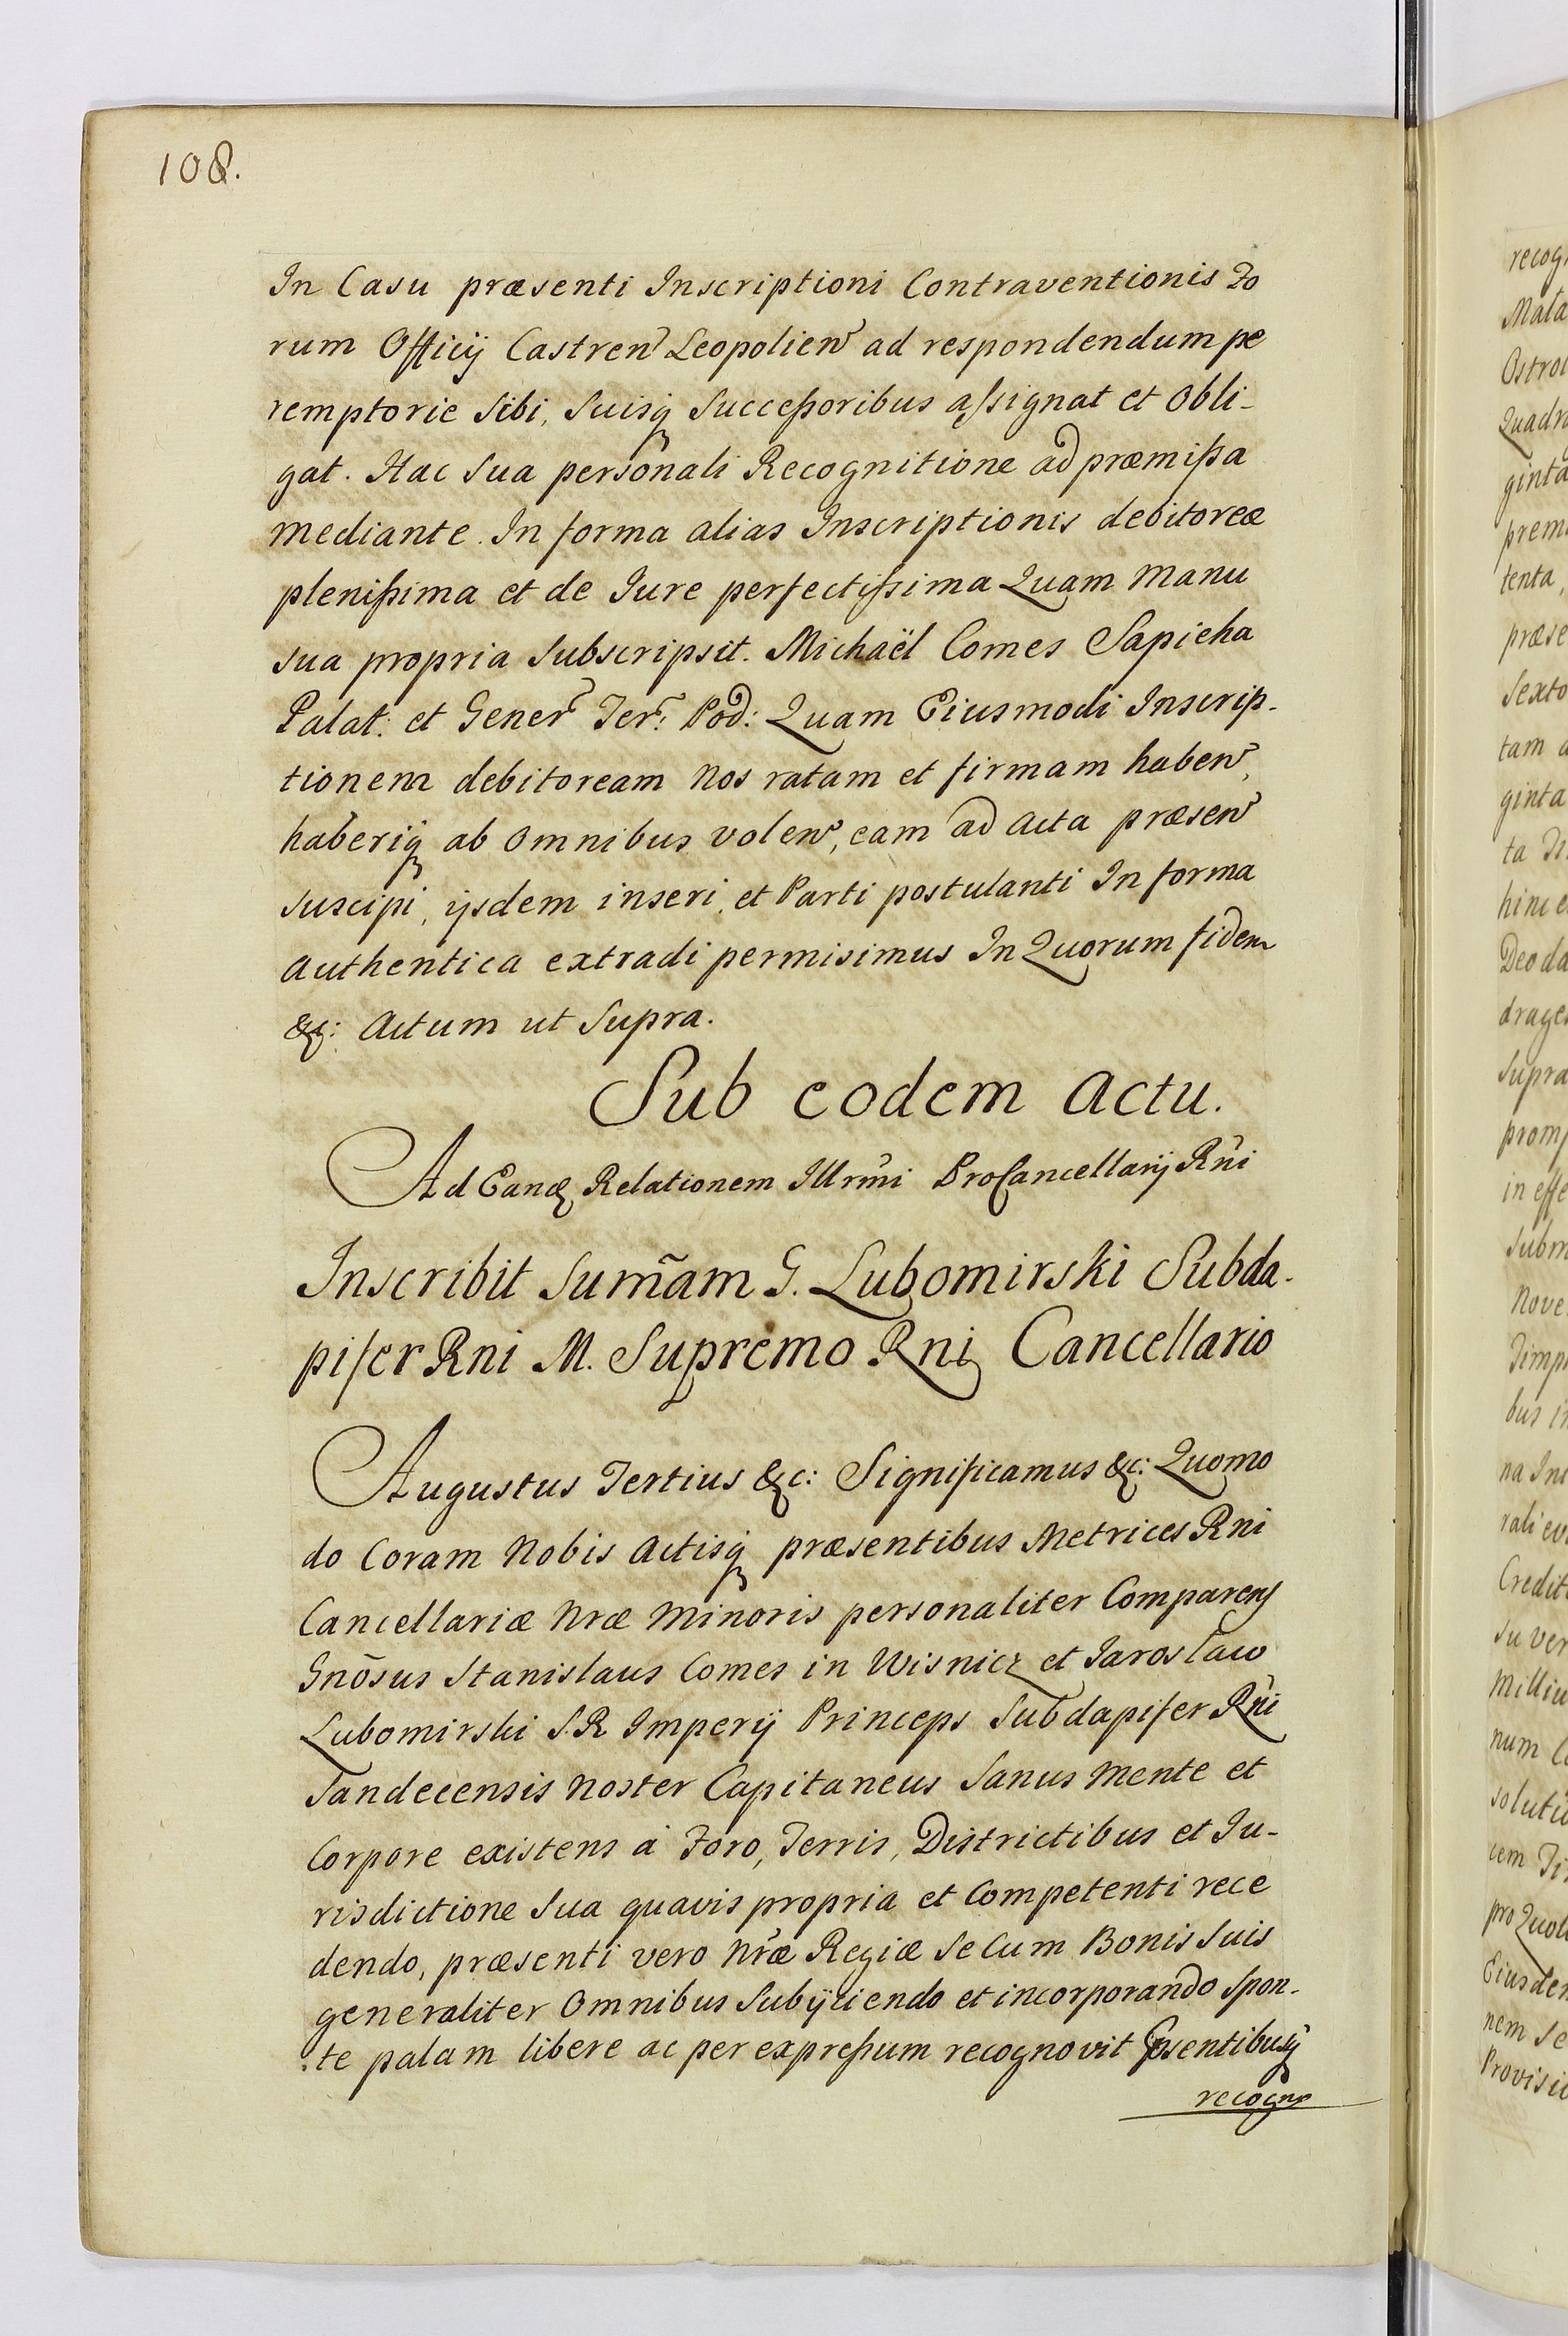 108.
In Casu præsenti Inscriptioni Contraventionis Fo
rum Officij Castren Leopolien ad respondendum pe
remptorie Sibi, Suisq Succeßoribus aſsignat et Obli-
gat. Hac Sua personali Recognitione ad præmißa
mediante. In forma alias Inscriptionis debitoreæ
plenißima et de Jure perfectißima Quam Manu
sua propria Subscripsit. Michaël Comes Sapieha
Palat: et Gener Ter: Pod: Quam Eiusmodi Inscrip-
tionem debitoream Nos ratam et firmam haben,
haberiq ab Omnibus volen, eam ad Acta præsen
suscipi, ijsdem inseri, et Parti postulanti In forma
authentica extradi permisimus In Quorum fidem
&c: Actum ut Supra.
Sub eodem Actu.
Ad Eandq Relationem Illrmi ProCancellarij Rni
Inscribit Sum̃am G. Lubomirski Subda-
pifer Rni M. Supremo Rni Cancellario
Augustus Tertius &c: Significamus &c: Quomo
do Coram Nobis Actisq præsentibus Metrices Rni
Cancellariæ Nræ Minoris personaliter Comparens
Gnõsus Stanislaus Comes in Wisnicz et Jaroslaw
Lubomirski S.R Imperij Princeps Subdapifer Rni
Sandecensis Noster Capitaneus Sanus Mente et
Corpore existens à Foro, Terris, Districtibus et Ju-
risdictione Sua quavis propria et Competenti rece
dendo, præsenti vero Nræ Regiæ Se Cum Bonis Suis
generaliter Omnibus Subijciendo et incorporando Spon-
te palam libere ac per expreßum recognovit Psentibusq
recogno
recog
Mata
Ostro
Quadr
ginta
prem
tenta,
præse
Sexto
tam a
ginta
hinc e
Deo da
drages
Supra
prom
in effe
Subm
Nove
bus i
na In
Credit
su ver
Milliu
num C
soluti
pro Quol
Eiusdem
nem Se
Provisio